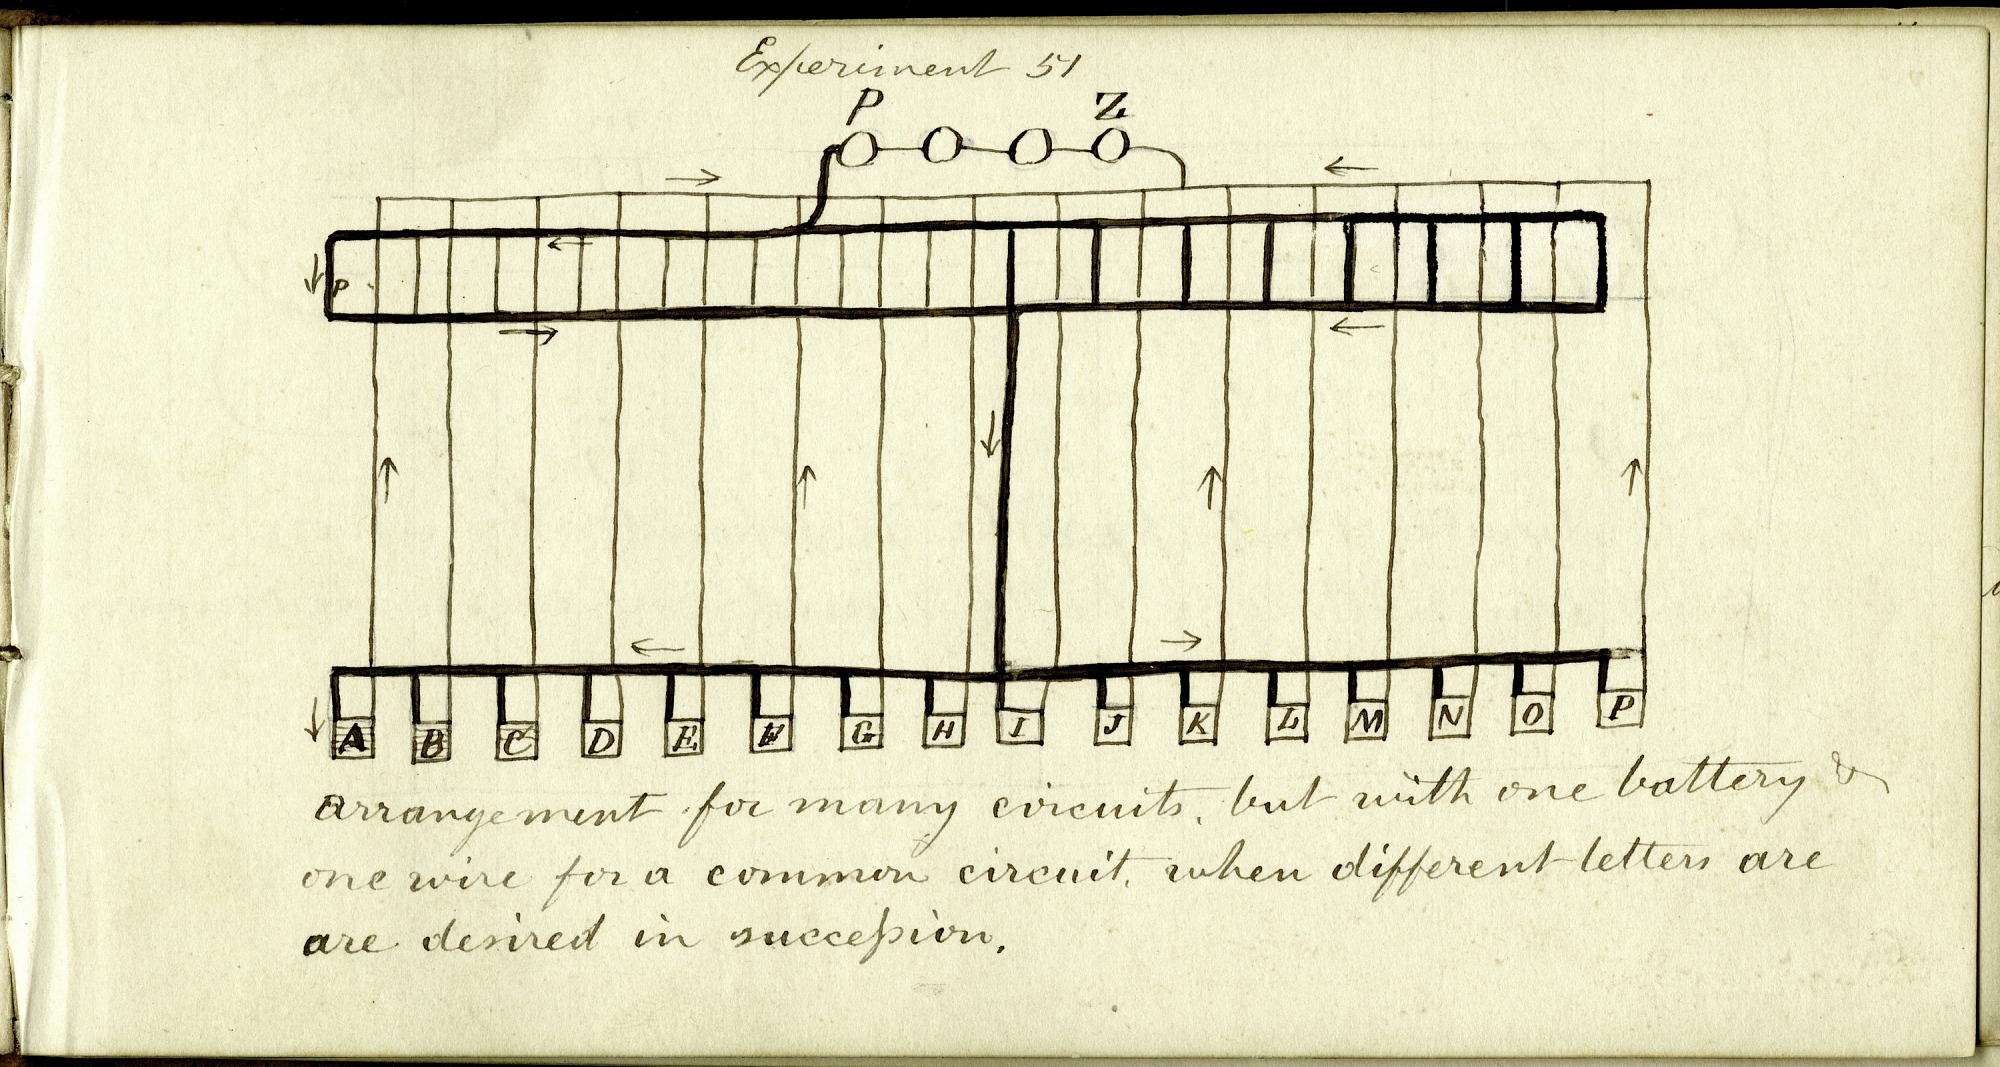 Experiment 51
P Z
P
A B C D E F G H I J K L M N O P
Arrangement for many circuits, but with one battery &
one wire for a common circuit, when different letters are
are desired in succeſsion.